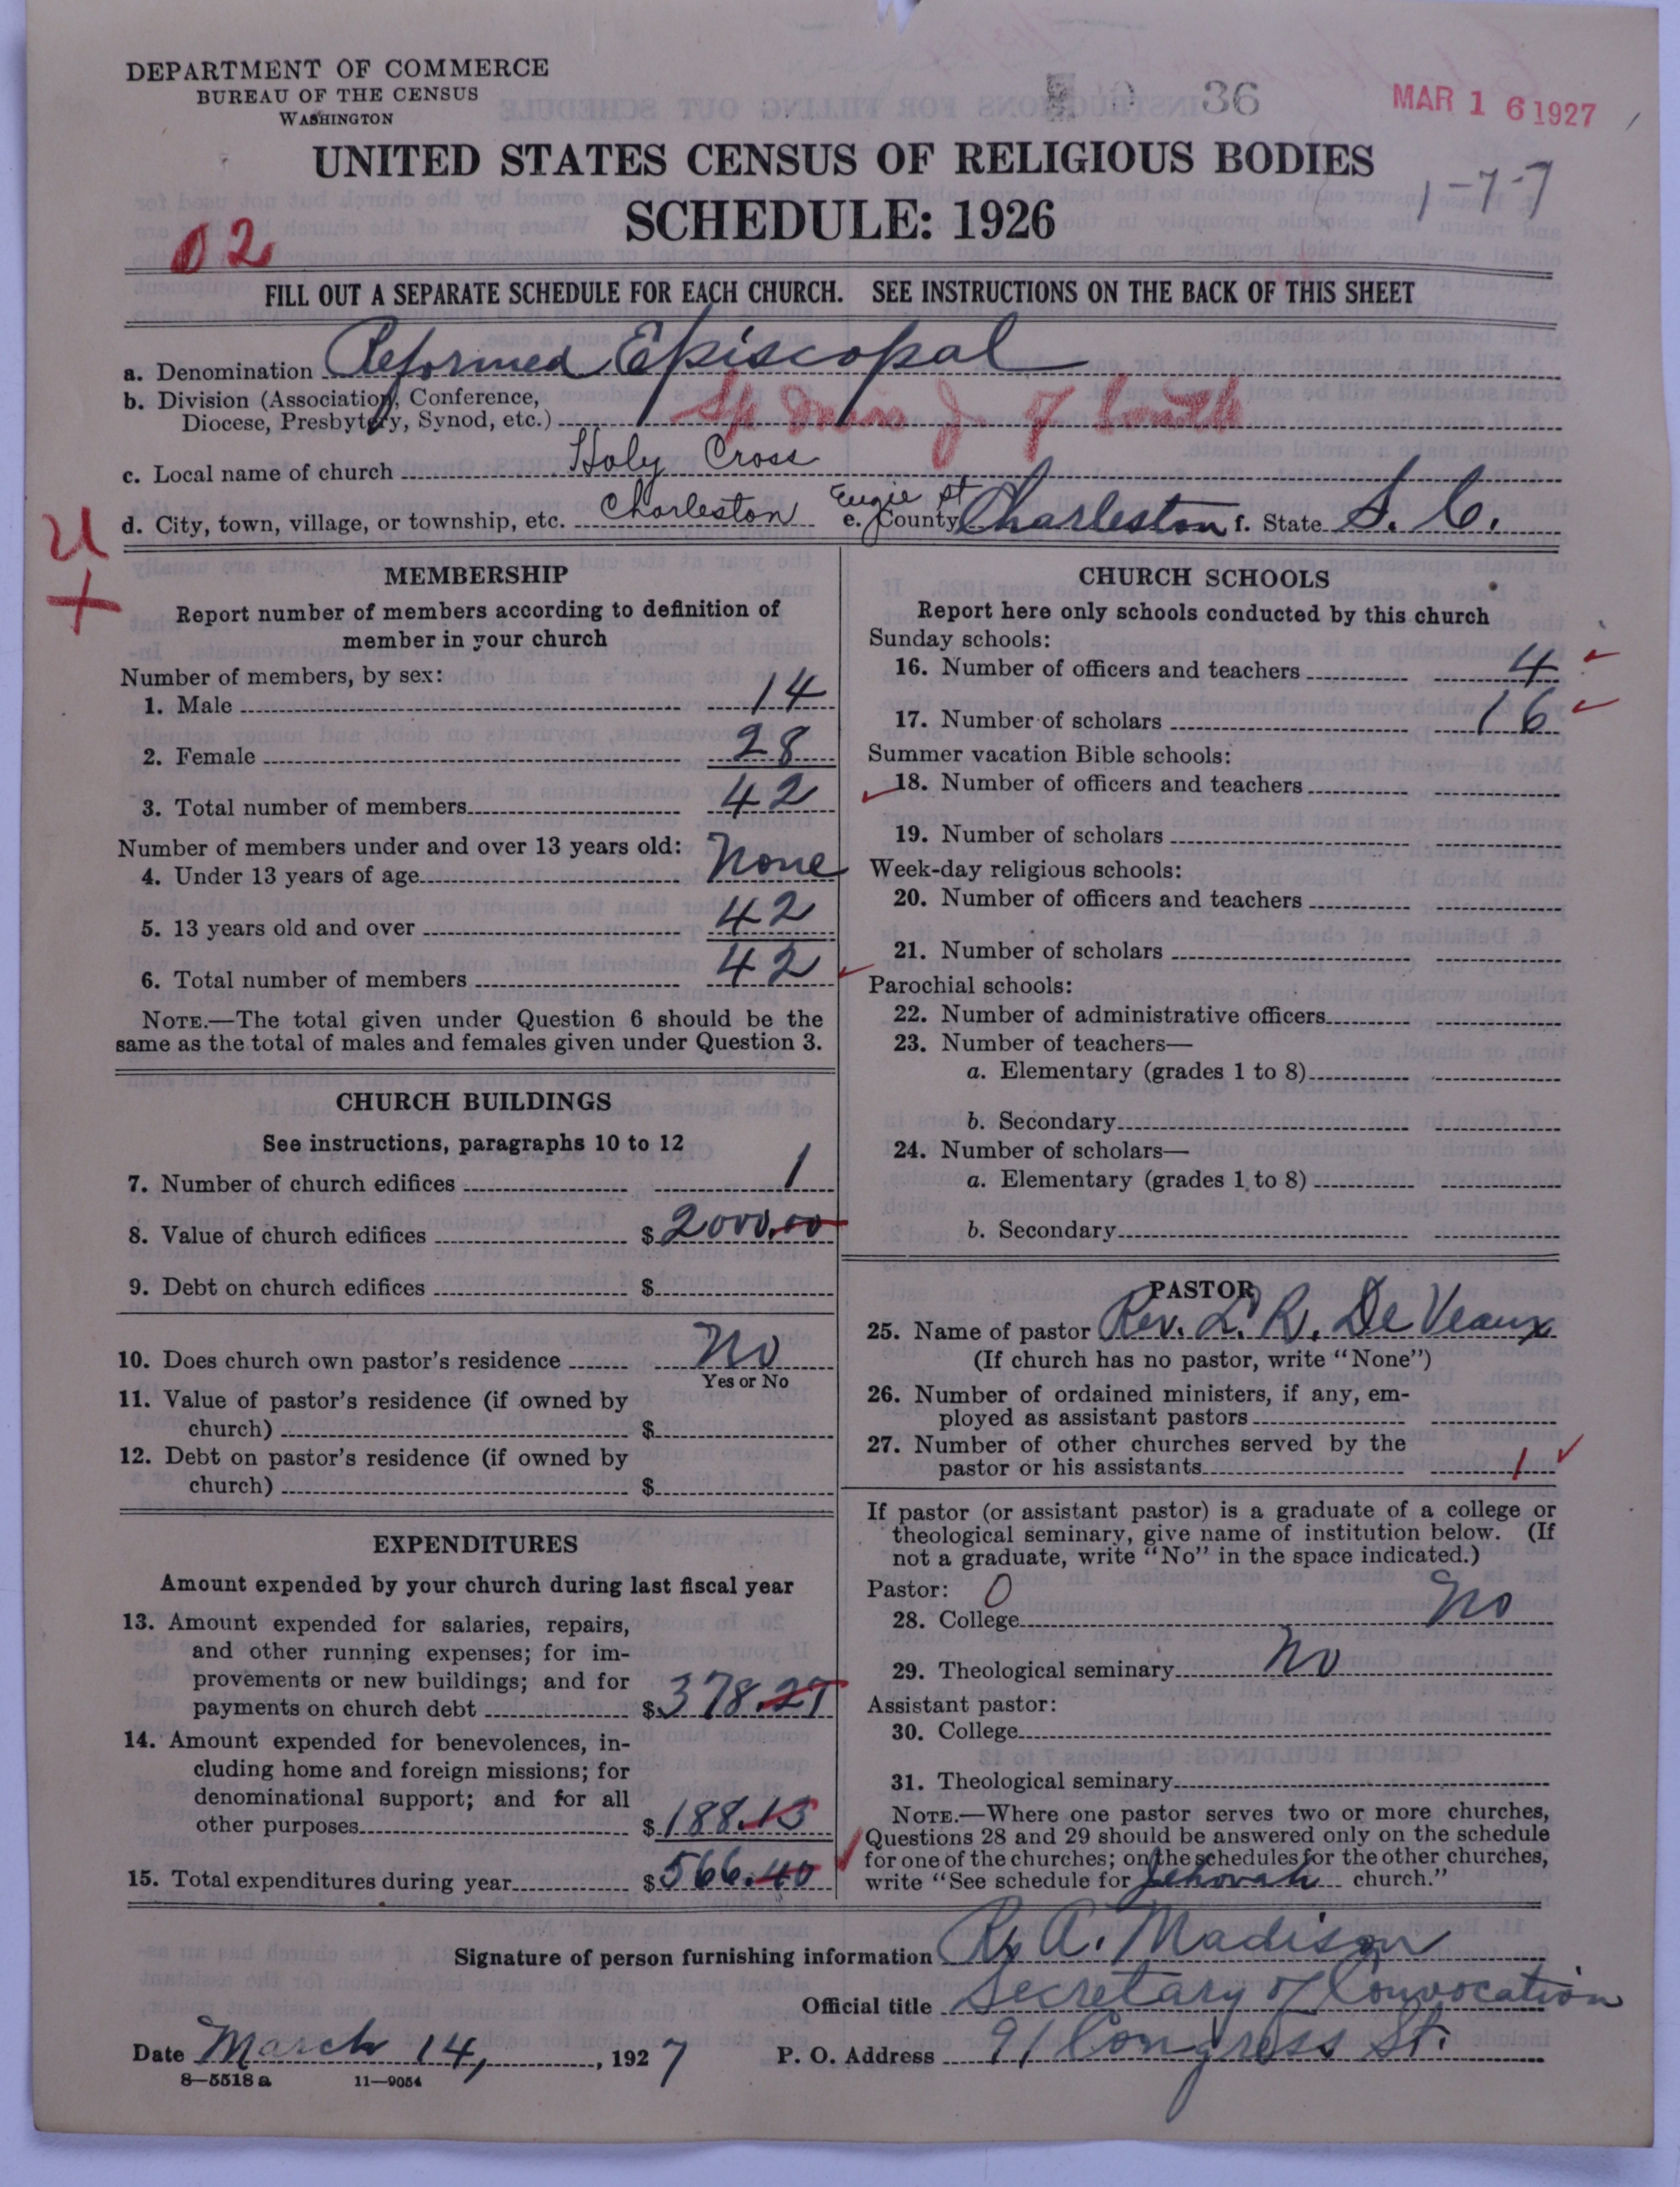 DEPARTMENT OF COMMERCE
BUREAU OF THE CENSUS
WASHINGTON
36
MAR 16 1927
UNITED STATES CENSUS OF RELIGIOUS BODIES
1-7-7
SCHEDULE: 1926
02
FILL OUT A SEPARATE SCHEDULE FOR EACH CHURCH. SEE INSTRUCTIONS ON THE BACK OF THIS SHEET
a. Denomination Reformed Episcopal
b. Division (Association, Conference,
Diocese, Presbytery, Synod, etc.) Sp Miss J of South
c. Local name of church Holy Cross
d. City, town, village, or township, etc. Charleston Eugie St e. County Charleston f. State S. C.
U
+
MEMBERSHIP
Report number of members according to definition of
member in your church
Number of members, by sex:
1. Male 14
2. Female 28
3. Total number of members 42
Number of members under and over 13 years old:
4. Under 13 years of age None
5. 13 years old and over 42
6. Total number of members 42
NOTE.—The total given under Question 6 should be the
same as the total of males and females given under Question 3.
CHURCH BUILDINGS
See instructions, paragraphs 10 to 12
7. Number of church edifices 1
8. Value of church edifices $ 2000.00
9. Debt on church edifices $
10. Does church own pastor's residence No
Yes or No
11. Value of pastor's residence (if owned by
church) $
12. Debt on pastor's residence (if owned by
church) $
EXPENDITURES
Amount expended by your church during last fiscal year
13. Amount expended for salaries, repairs,
and other running expenses; for im-
provements or new buildings; and for
payments on church debt $ 378.27
14. Amount expended for benevolences, in-
cluding home and foreign missions; for
denominational support; and for all
other purposes $ 188.13
15. Total expenditures during year $ 566.40
CHURCH SCHOOLS
Report here only schools conducted by this church
Sunday schools:
16. Number of officers and teachers 4
17. Number of scholars 16
Summer vacation Bible schools:
18. Number of officers and teachers
19. Number of scholars
Week-day religious schools:
20. Number of officers and teachers
21. Number of scholars
Parochial schools:
22. Number of administrative officers
23. Number of teachers—
a. Elementary (grades 1 to 8)
b. Secondary
24. Number of scholars—
a. Elementary (grades 1 to 8)
b. Secondary
PASTOR
25. Name of pastor Rev. L. R. De Veaux
(If church has no pastor, write "None")
26. Number of ordained ministers, if any, em-
ployed as assistant pastors
27. Number of other churches served by the
pastor or his assistants 1
If pastor (or assistant pastor) is a graduate of a college or
theological seminary, give name of institution below. (If
not a graduate, write "No" in the space indicated.)
Pastor: 0
28. College No
29. Theological seminary No
Assistant pastor:
30. College
31. Theological seminary
NOTE.—Where one pastor serves two or more churches,
Questions 28 and 29 should be answered only on the schedule
for one of the churches; on the schedules for the other churches,
write "See schedule for Jehovah church."
Signature of person furnishing information R. A. Madison
Official title Secretary of Convocation
Date March 14, 1927 P. O. Address 91 Congress St.
8—5518 a 11—9054